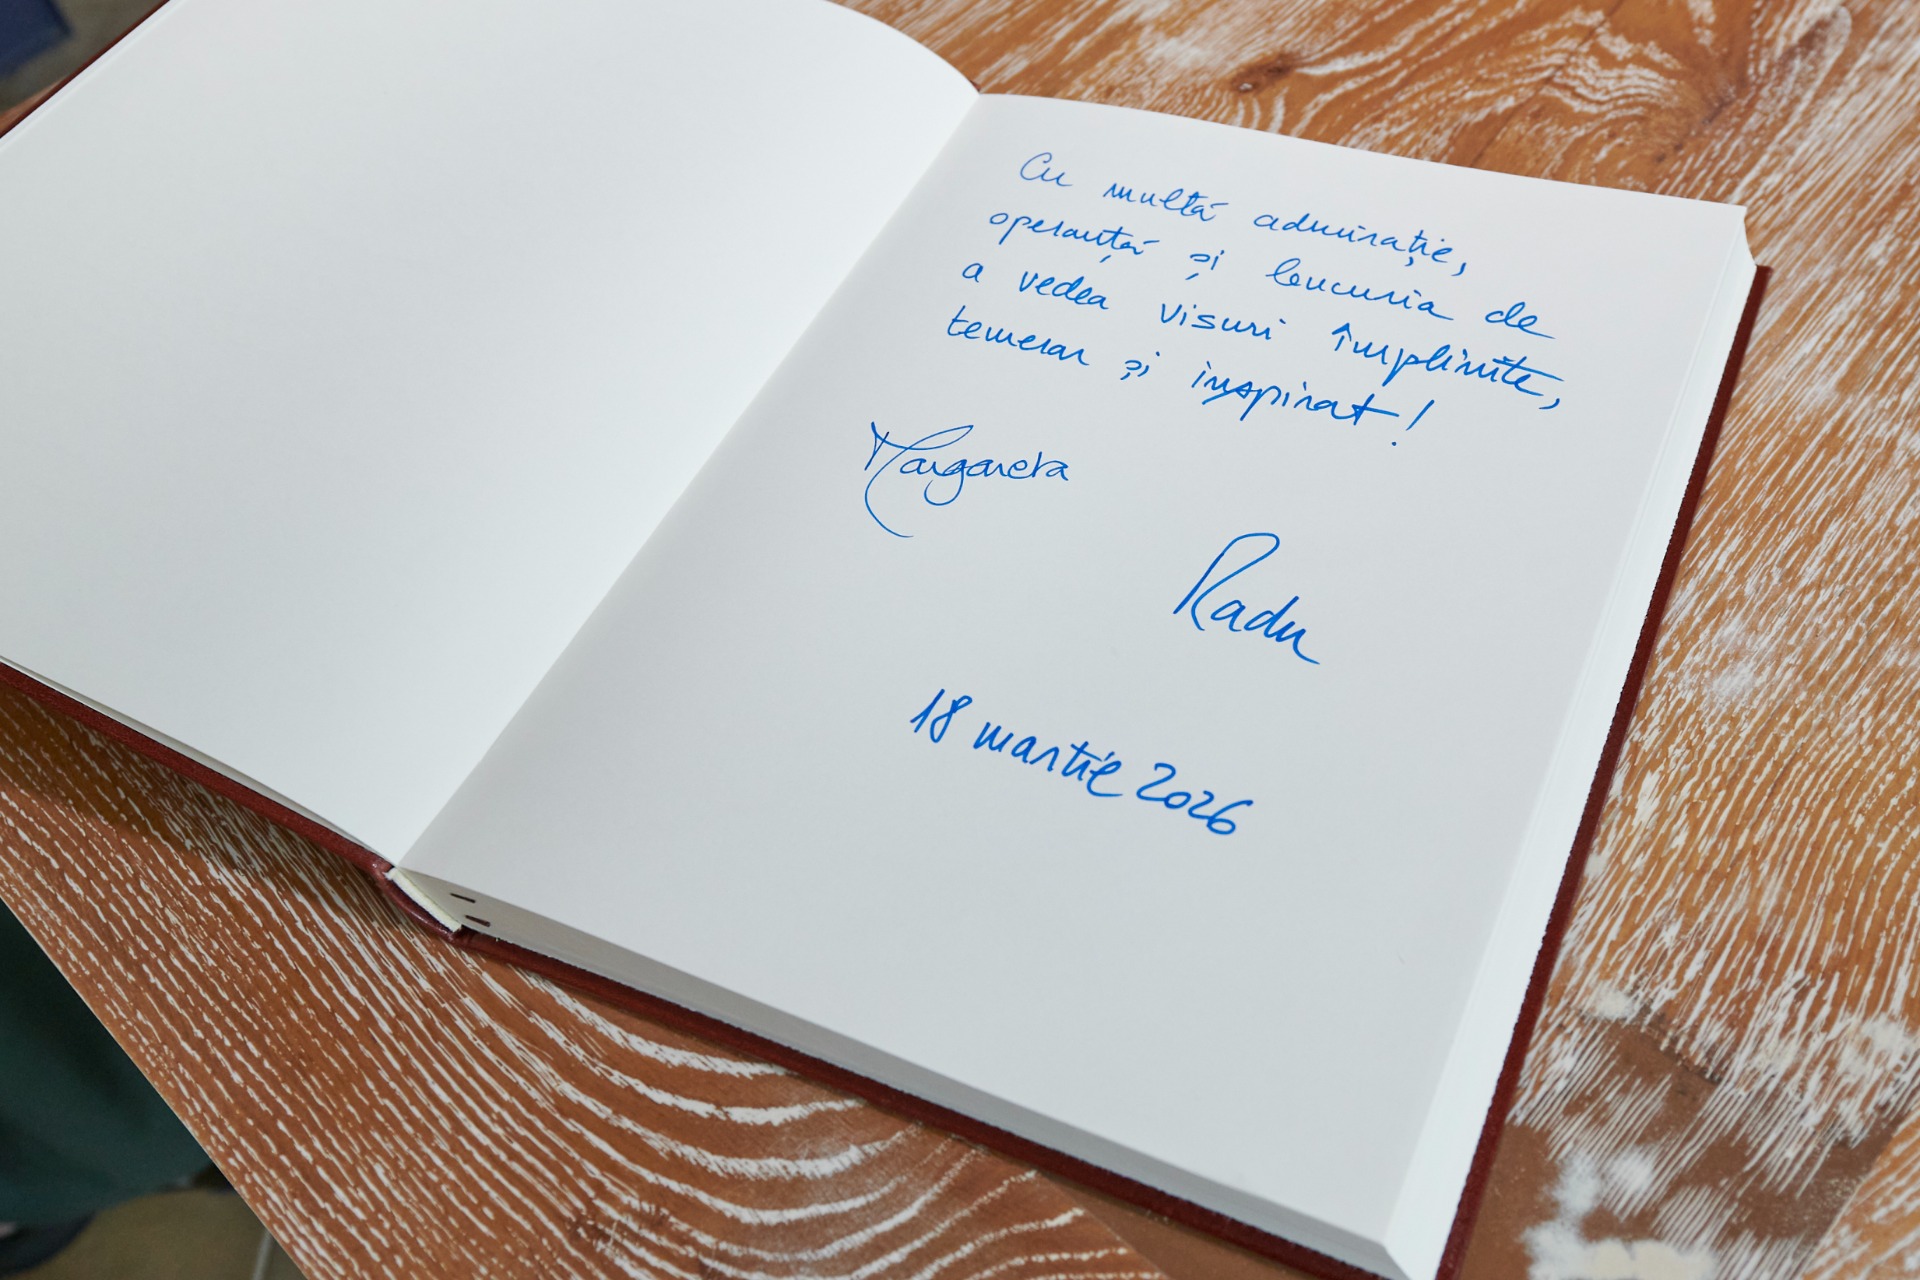 Cu multă admirație,
speranță și bucuria de
a vedea visuri împlinite,
temerar și inspirat!
Margareta
Radu
18 martie 2026